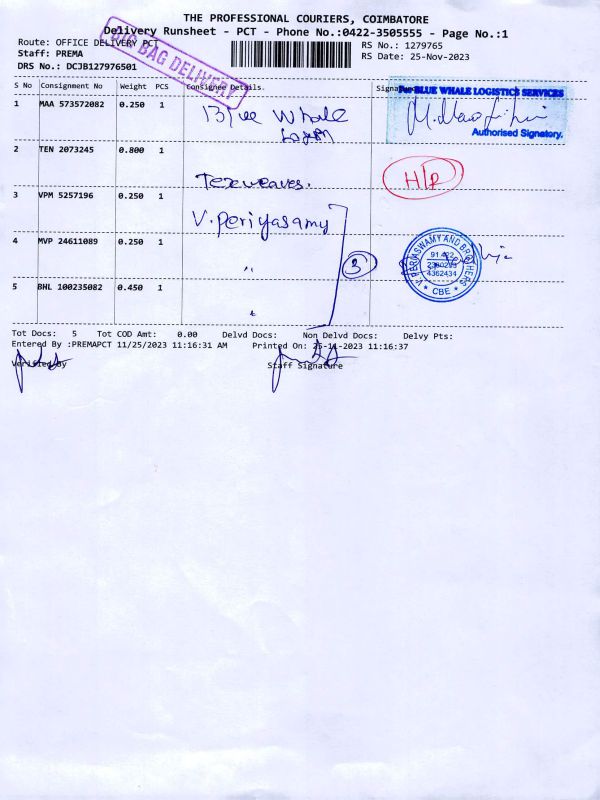 THE PROFESSIONAL COURIERS, COIMBATORE
Delivery Runsheet - PCT - Phone No.:0422-3505555 - Page No.:1
Route: OFFICE DELIVERY PCT
RS No.: 1279765
Staff: PREMA
RS Date: 25-Nov-2023
DRS No.: DCJB127976501
BIG BAG DELIVERY
S No Consignment No Weight PCS Consignee Details. Signa
For BLUE WHALE LOGISTICS SERVICES
1 MAA 573572082 0.250 1 Blue Whale
Authorised Signatory.
2 TEN 2073245 0.800 1
Texweaves.
H/R
3 VPM 5257196 0.250 1
V. Periyasamy
4 MVP 24611089 0.250 1
"
3
V. PERIASWAMY AND BROTHERS
91 422
4362434
* CBE *
5 BHL 100235082 0.450 1
Tot Docs: 5 Tot COD Amt: 0.00 Delvd Docs: Non Delvd Docs: Delvy Pts:
Entered By :PREMAPCT 11/25/2023 11:16:31 AM Printed On: 25-11-2023 11:16:37
Verified By Staff Signature